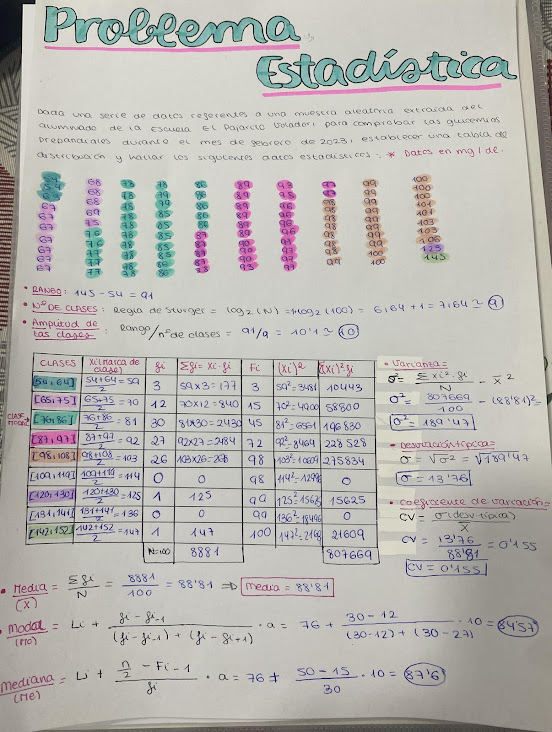 Problema
Estadística
Dada una serie de datos referentes a una muestra aleatoria extraída del
alumnado de la Escuela El Pajarito Volador, para comprobar las glucemias
preprandiales durante el mes de febrero de 2023, establecer una tabla de
distribución y hallar los siguientes datos estadísticos: * Datos en mg/dl.
68 78 86 89 93 99 100
67 99 100
67 69 85 98 99 101
67 75 78 85 98 99 103
67 76 78 86 98 99 103
67 78 86 90 98 99 106
67 77 78 86 90 98 99 125
67 77 98 100 145
• RANGO: 145 - 54 = 91
• Nº DE CLASES: Regla de Sturger = log₂(N) = log₂(100) = 6,64 + 1 = 7,64 ≃ 9
• Amplitud de las clases: Rango/nº de clases = 91/9 = 10'1 ≃ 10
CLASES Xi(marca de clase) fi Σfi = Xi·fi Fi (Xi)² (Xi)²·fi
[54,64] 54+64/2 = 59 3 59x3=177 3 59²=3481 10443
[65,75] 65+75/2 = 70 12 70x12=840 15 70²=4900 58800
CLASE MODAL [76,86] 76+86/2 = 81 30 81x30=2430 45 81²=6561 196830
[87,97] 87+97/2 = 92 27 92x27=2484 72 92²=8464 228528
[98,108] 98+108/2 = 103 26 103x26=268 98 103²=10609 275834
[109,119] 109+119/2 = 114 0 0 98 114²=12996 0
[120,130] 120+130/2 = 125 1 125 99 125²=15625 15625
[131,141] 131+141/2 = 136 0 0 99 136²=18496 0
[142,152] 142+152/2 = 147 1 147 100 147²=2169 21609
N=100 8881 807669
• Varianza=
σ² = Σxi²·fi/N - x̄²
σ² = 807669/100 - (88'81)² =
σ² = 189'47
• Desviación típica=
σ = √σ² = √189'47
σ = 13'76
• Coeficiente de variación=
CV = σ(desv. típica)/X̄
CV = 13'76/88'81 = 0'155
CV = 0'155
• Media (X̄) = Σfi/N = 8881/100 = 88'81 ⇒ Media = 88'81
• Modal (Mo) = Li + fi-fi-1/(fi-fi-1) + (fi-fi+1) · a = 76 + 30-12/(30-12)+(30-27) · 10 = 84'57
• Mediana (Me) = Li + n/2 - Fi-1/fi · a = 76 + 50-15/30 · 10 = 87'6